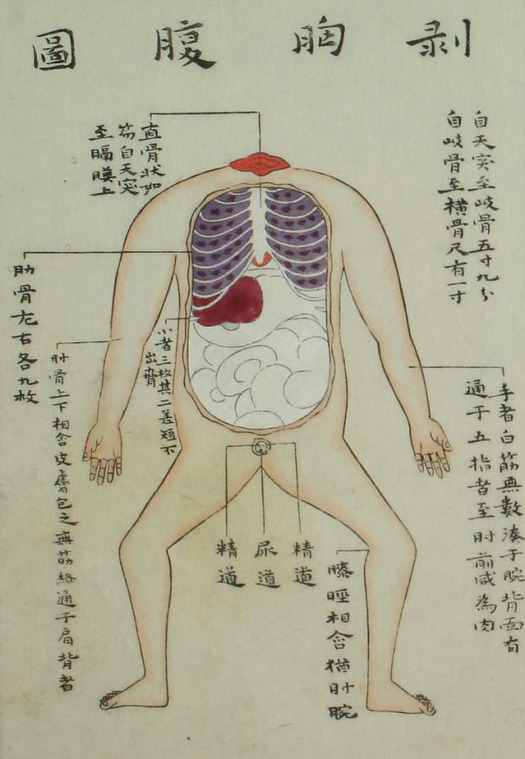 剥胸腹圖
自天突至岐骨五寸九分
自岐骨至横骨尺有一寸
直骨状如
笏自天突
至膈膜上
手者白筋無數湊于腕背面有
通于五指者至肘前咸為肉
小者三枚其二差短不
出齊
肋骨左右各九枚
肘骨上下相含皮膚包之無筋絡通于肩背者
精道
尿道
精道
膝脛相含猶肘腕